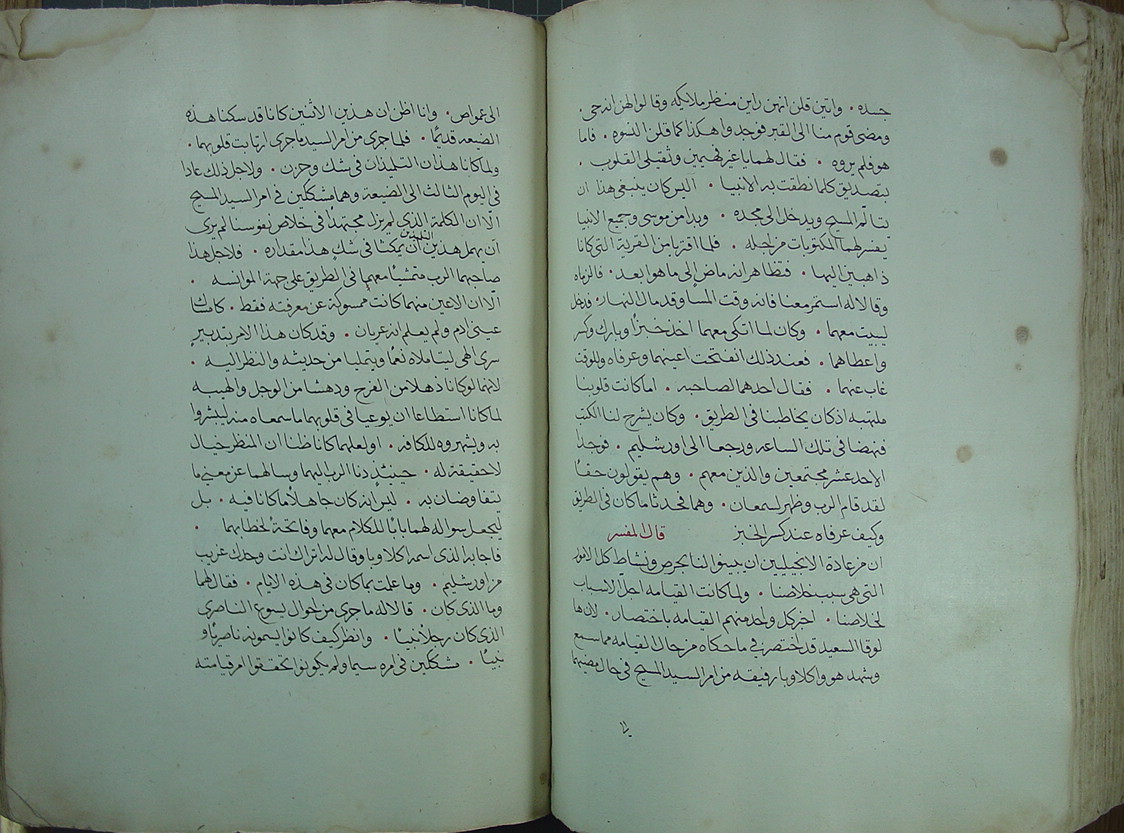 جسده . واتين قلن انهن راين منظر ملائكه وقالوا لهن انه حي .
ومضى قوم منا الى القبر فوجدوا هكذا كما قلن النسوه . فاما
هو فلم يروه . فقال لهما يا غير فهيمين وثقيلى القلوب .
بتصديق كلما نطقت به الانبيا . اليس كان ينبغى هذا ان
يتالم المسيح ويدخل الى مجده . وبدا من موسى وجميع الانبيا
يفسر لهما المكتوبات من اجله . فلما اقتربا من القرية التى كانا
ذاهبين اليها . فتظاهر انه ماض إلى ما هو ابعد . فالزماه
وقالا له استمر معنا فانه وقت المسا وقد مال النهار . فدخل
ليبيت معهما . وكان لما اتكى معهما اخذ خبزا وبارك وكسر
واعطاهما . فعند ذلك انفتحت اعينهما وعرفاه وللوقت
غاب عنهما . فقال احدهما لصاحبه . اما كانت قلوبنا
ملتهبه اذ كان يخاطبنا فى الطريق . وكان يشرح لنا الكتب
فنهضا فى تلك الساعه ورجعا الى اورشليم . فوجدا
الاحد عشر مجتمعين والذين معهم . وهم يقولون حقا
لقد قام الرب وظهر لسمعان . وهما تحدثا ما كان فى الطريق
وكيف عرفاه عند كسر الخبز قال المفسر
ان من عادة الانجيليين ان يبينوا لنا بحرص ونشاط كل الامور
التى هى سبب خلاصنا . ولما كانت القيامه اجل الاسباب
لخلاصنا . اخبر كل واحد منهم القيامه باختصار . لان ها
لوقا السعيد قد اختصر فى ما حكاه من حال القيامه مما سمع
وشهد هو واكلاوبا رفيقه من امر السيد المسيح فى حال مضيهما
الى عمواص . وانا اظن ان هذين الاثنين كانا قد سكنا هذه
الضيعه قديما . فلما جرى من امر السيد ما جرى ارتابت قلوبهما .
ولما كانا هذان التلميذان فى شك وحزن . ولاجل ذلك عادا
فى اليوم الثالث الى الضيعة وهما مشككين فى امر السيد المسيح
الا ان الكلمة الذى لم يزل مجتهدا فى خلاص نفوسنا لم يرى
ان يهمل هذين التلميذين ان يمكثا فى شك هذا مقداره . فلاجل هذا
صاحبهما الرب متمشيا معهما فى الطريق على جهة الموانسه .
الا ان الاعين منهما كانت ممسوكة عن معرفته فقط . كما كانت
عينى ادم ولم يعلم انه عريان . وقد كان هذا الامر بتدبير
سرى الهى ليتاملاه نعما ويتمليا من حديثه والنظر اليه .
لانهما لو كانا ذهلا من الفرح ودهشا من الوجل والهيبه
لما كانا استطاعا ان يوعيا فى قلوبهما ما سمعاه منه ليبشروا
به ويشهروه للكافه . او لعلهما كانا ظنا ان المنظر خيال
لا حقيقة له . حينئذ دنا الرب اليهما وسالهما عن معنى ما
يتفاوضان به . ليس انه كان جاهلا ما كانا فيه . بل
ليجعل سواله لهما بابا للكلام معهما وفاتحة لخطابهما .
فاجابه الذى اسمه اكلاوبا وقال له لما تراك انت وحدك غريب
من اورشليم . وما علمت بما كان فى هذه الايام . فقال لهما
وما الذى كان . قالا له ما جرى من احوال يسوع الناصرى
الذى كان رجلا نبيا . وانظر كيف كانوا يسمونه ناصريا و
نبيا . شكاكين فى امره سيما ولم يكونوا تحققوا امر قيامته